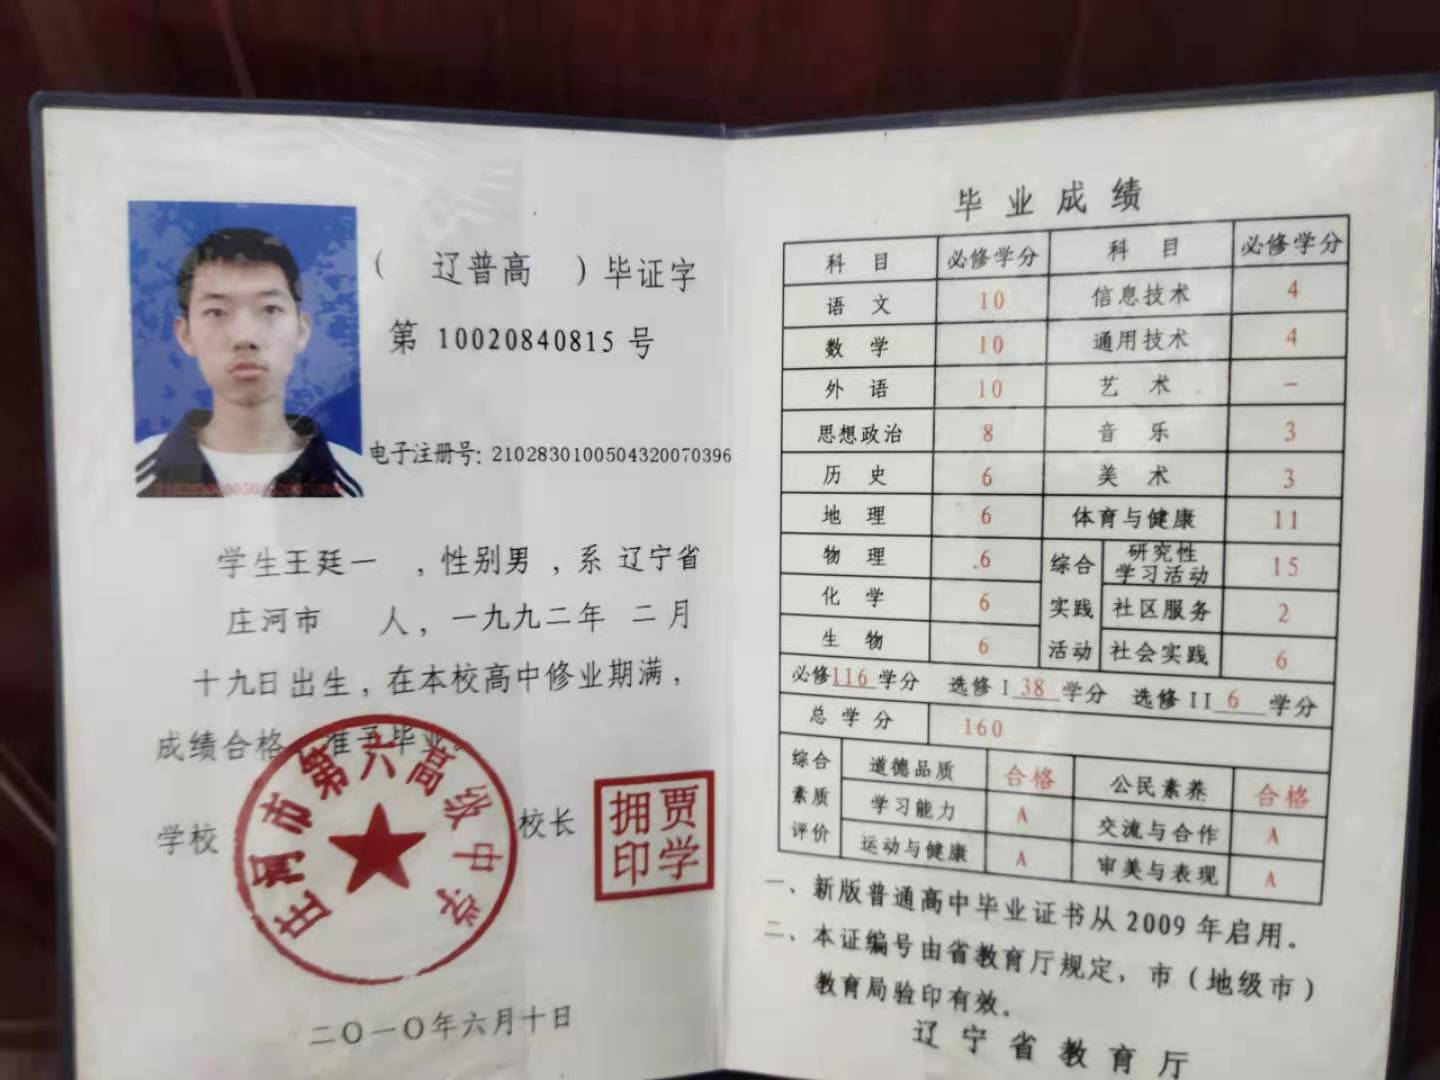 （ 辽普高 ）毕证字
第 10020840815 号
电子注册号: 2102830100504320070396
学生王廷一 ，性别男 ，系 辽宁省
庄河市 人，一九九二年 二月
十九日出生，在本校高中修业期满，
成绩合格，准予毕业。
学校 校长
庄河市第六高级中学
贾学拥印
二〇一〇年六月十日
毕业成绩
科目 必修学分 科目 必修学分
语文 10 信息技术 4
数学 10 通用技术 4
外语 10 艺术 —
思想政治 8 音乐 3
历史 6 美术 3
地理 6 体育与健康 11
物理 6 综合实践活动 研究性学习活动 15
化学 6 社区服务 2
生物 6 社会实践 6
必修116学分 选修I 38 学分 选修II 6 学分
总学分 160
综合素质评价 道德品质 合格 公民素养 合格
学习能力 A 交流与合作 A
运动与健康 A 审美与表现 A
一、新版普通高中毕业证书从2009年启用。
二、本证编号由省教育厅规定，市（地级市）
教育局验印有效。
辽宁省教育厅